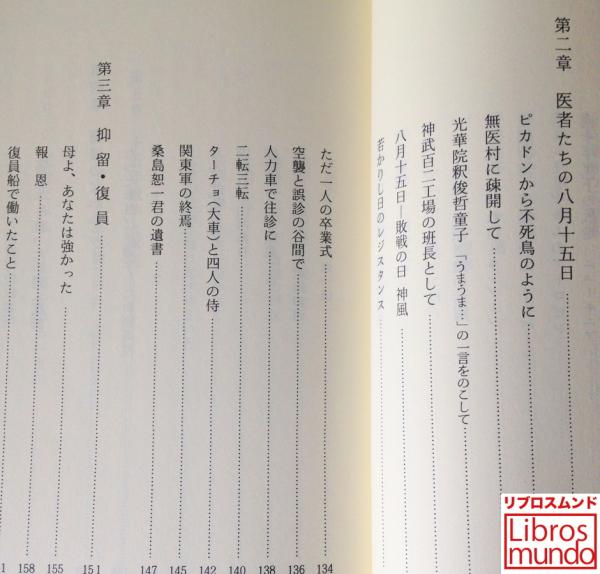 第二章　医者たちの八月十五日
ピカドンから不死鳥のように
無医村に疎開して
光華院釈俊哲童子　「うまうま…」の一言をのこして
神武百二工場の班長として
八月十五日―敗戦の日　神風
若かりし日のレジスタンス
ただ一人の卒業式 134
空襲と誤診の谷間で 136
人力車で往診に 138
二転三転 140
ターチョ（大車）と四人の侍 142
関東軍の終焉 145
桑島恕一君の遺書 147
第三章　抑留・復員 151
母よ、あなたは強かった 155
報　恩 158
復員船で働いたこと
リブロスムンド
Libros
mundo